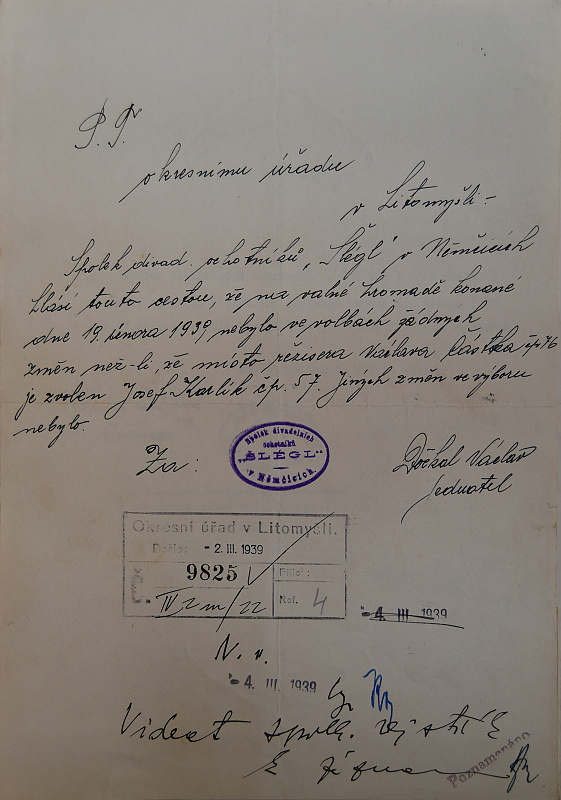 P. T.
okresnímu úřadu
v Litomyšli -
Spolek divad. ochotníků „Šlégl" v Němčicích
hlásí touto cestou, že na valné hromadě konané
dne 19. února 1939 nebylo ve volbách žádných
změn než-li, že místo režisera Václava Částka čp 76
je zvolen Josef Karlík čp. 57. Jiných změn ve výboru
nebylo.
Za:
Spolek divadelních
ochotníků
„ŠLÉGL"
v Němčicích.
Dočkal Václav
jednatel
Okresní úřad v Litomyšli.
Došlo: - 2. III. 1939
Č. 9825
Příloh:
IV 2 m/22
Ref. 4
- 4. III 1939
N. v.
- 4. III. 1939
Videat spolk. rejstřík
Poznamenáno